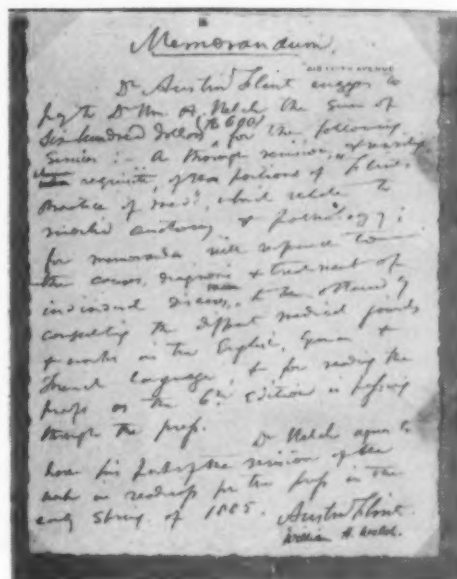 Memorandum.
FIFTH AVENUE
Dr Austin Flint engages to
pay to Dr Wm. H. Welch the sum of
Six hundred dollars ($600) for the following
Services: - A thorough revision, & rewriting
where requisite, of those portions of Flint's
Practice of Med. which relate to
morbid anatomy & pathology;
for memoranda with reference to
the causes, diagnosis & treatment of
individual diseases, to be obtained by
consulting the different medical journals
& works in the English, German &
French language, & for reading the
proofs as the 6th Edition is passing
through the press.
Dr Welch agrees to
have his part of the revision of the
work in readiness for the press in the
early Spring of 1885.
Austin Flint.
William H. Welch.